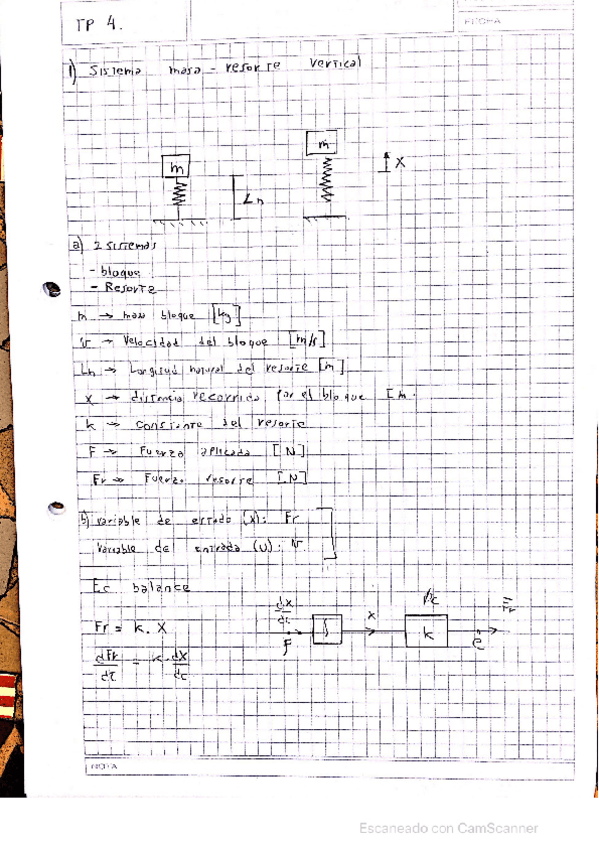 TP 4.
FECHA
1) Sistema masa - resorte vertical
m
m
X
Ln
a) 2 sistemas
- bloque
- Resorte
m → masa bloque [kg]
v → Velocidad del bloque [m/s]
Ln → Longitud natural del resorte [m]
x → distancia recorrida por el bloque [m
k → constante del resorte
F → Fuerza aplicada [N]
Fr → Fuerza resorte [N]
b) variable de estado (x): Fr
Variable de entrada (u): v
Ec balance
dx/dt
∫
x
k
Fr
f
e
Fr = k . x
dFr/dt = k . dx/dt
FECHA
Escaneado con CamScanner